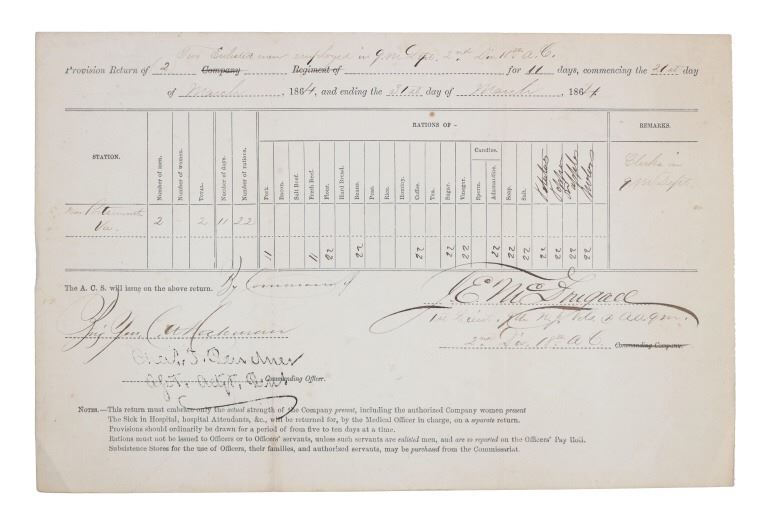 Two Enlisted men employed in Q.M. Dept. 2nd Div 18th A.C.
Provision Return of 2 Company Regiment of for 11 days, commencing the 21st day
of March, 1864, and ending the 31st day of March, 1864
STATION.
Number of men.
Number of women.
TOTAL.
Number of days.
Number of rations.
RATIONS OF -
Pork.
Bacon.
Salt Beef.
Fresh Beef.
Flour.
Hard Bread.
Beans.
Peas.
Rice.
Hominy.
Coffee.
Tea.
Sugar.
Vinegar.
Candles.
Sperm.
Adamantine.
Soap.
Salt.
Potatoes
Pepper
REMARKS.
Clerks in
Q M Dept.
Near Portsmouth
Va.
2 2 11 22
11 11 22 22 22 22 22 22 22 22 22 22 22 22
The A. C. S. will issue on the above return. By Command of
Brig Gen
Commanding Officer.
1st Lieut. N.Y. Vols & A.A.Q.M.
2nd Div. 18th A.C. Commanding Company.
NOTES.—This return must embrace only the actual strength of the Company present, including the authorized Company women present
The Sick in Hospital, hospital Attendants, &c., will be returned for, by the Medical Officer in charge, on a separate return.
Provisions should ordinarily be drawn for a period of from five to ten days at a time.
Rations must not be issued to Officers or to Officers' servants, unless such servants are enlisted men, and are so reported on the Officers' Pay Roll.
Subsistence Stores for the use of Officers, their families, and authorized servants, may be purchased from the Commissariat.